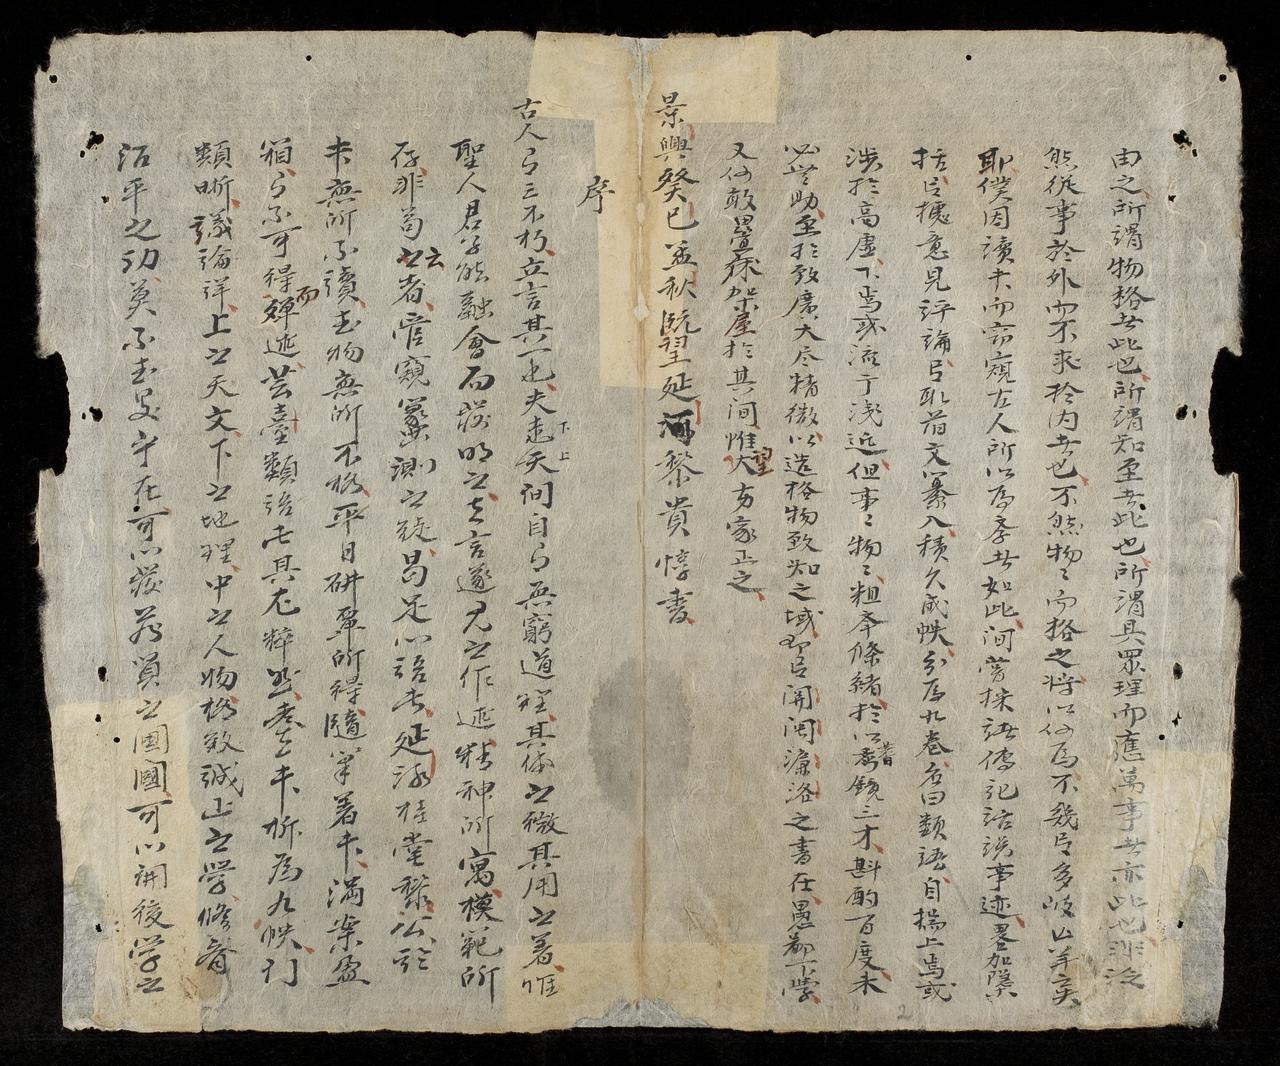 由之所謂物格者此也所謂知至者此也所謂具眾理而應萬事者亦此也非泛
然從事於外而不求於内者也不然物物而格之將以何為不幾於多岐亡羊矣
耶僕因讀書而竊窺古人所以為學者如此間嘗採諸傳記話談事迹畧加檃
括以攄意見評論以取首文彙入積久成帙分為九卷名曰類語自揣上焉或
涉於高虛下焉或流于淺近但事事物物粗本條緒於以著龜鏡三才斟酌百度未
必無助至於致廣大尽精微以造格物致知之域則有關閩濂洛之書在愚鄙下學
又何敢疊床架屋於其間惟望大方家正之
景興癸巳孟秋既望延河黎貴惇書
序
古人有三不朽立言其一也夫走天下上間自有無窮道理其体之微其用之著惟
聖人君子能融會而發明之立言遂見之作述精神所寓模範所
存非苟云之者管窺蠡測之疑曷足以語者延河桂堂黎公於
書無所不讀於物無所不格平日研覃所得隨筆著書滿案盈
箱有不可得而殫述芸臺類語者其尤粹然者也書析為九帙门
類晣議論詳上之天文下之地理中之人物格致誠正之學脩齊
治平之功莫不於是乎在可以發前賢之國國可以開後學之